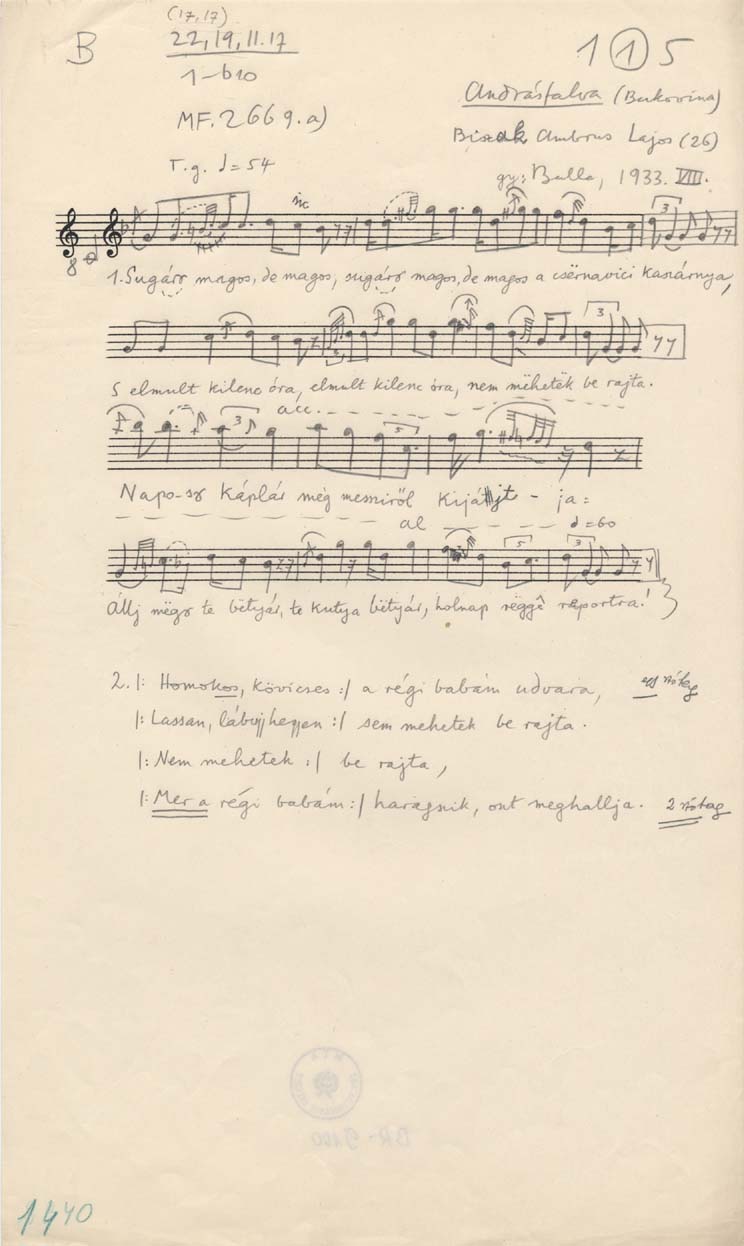 (17,17)
B
22, 19, 11. 17
1 ① 5
1–b10
Andrásfalva (Bukovina)
MF. 2669. a)
Ambrus Lajos (26)
T. g. ♩= 54
gy: Balla, 1933. VIII.
8
1. Sugáros magos, de magos, sugáros magos, de magos a csërnavici kaszárnya,
S elmult kilenc óra, elmult kilenc óra, nem mëhetëk be rajta.
acc.
Napo-sz káplár még messziről kijátjt - ja:
al
♩=60
Állj mëgsz te bëtyár, te kutya bëtyár, holnap rëggê raportra!
2. |: Homokos, kövicses :| a régi babám udvara,
|: Lassan, lábujjhegyen :| sem mehetek be rajta.
|: Nem mehetek :| be rajta,
|: Mer a régi babám :| haragszik, ont meghallja. 2 szótag
BR-9100
1440